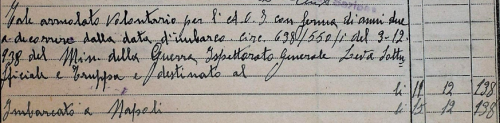 Tale arruolato volontario per l'ed G. I. con ferma di anni due
a decorrere dalla data d'imbarco circ. 638/550/1 del 3-12-
938 del Min. della Guerra Ispettorato Generale Leva Sottu
fficiali e Truppa e destinato al
li 11 12 938
Imbarcato a Napoli li 15 12 938